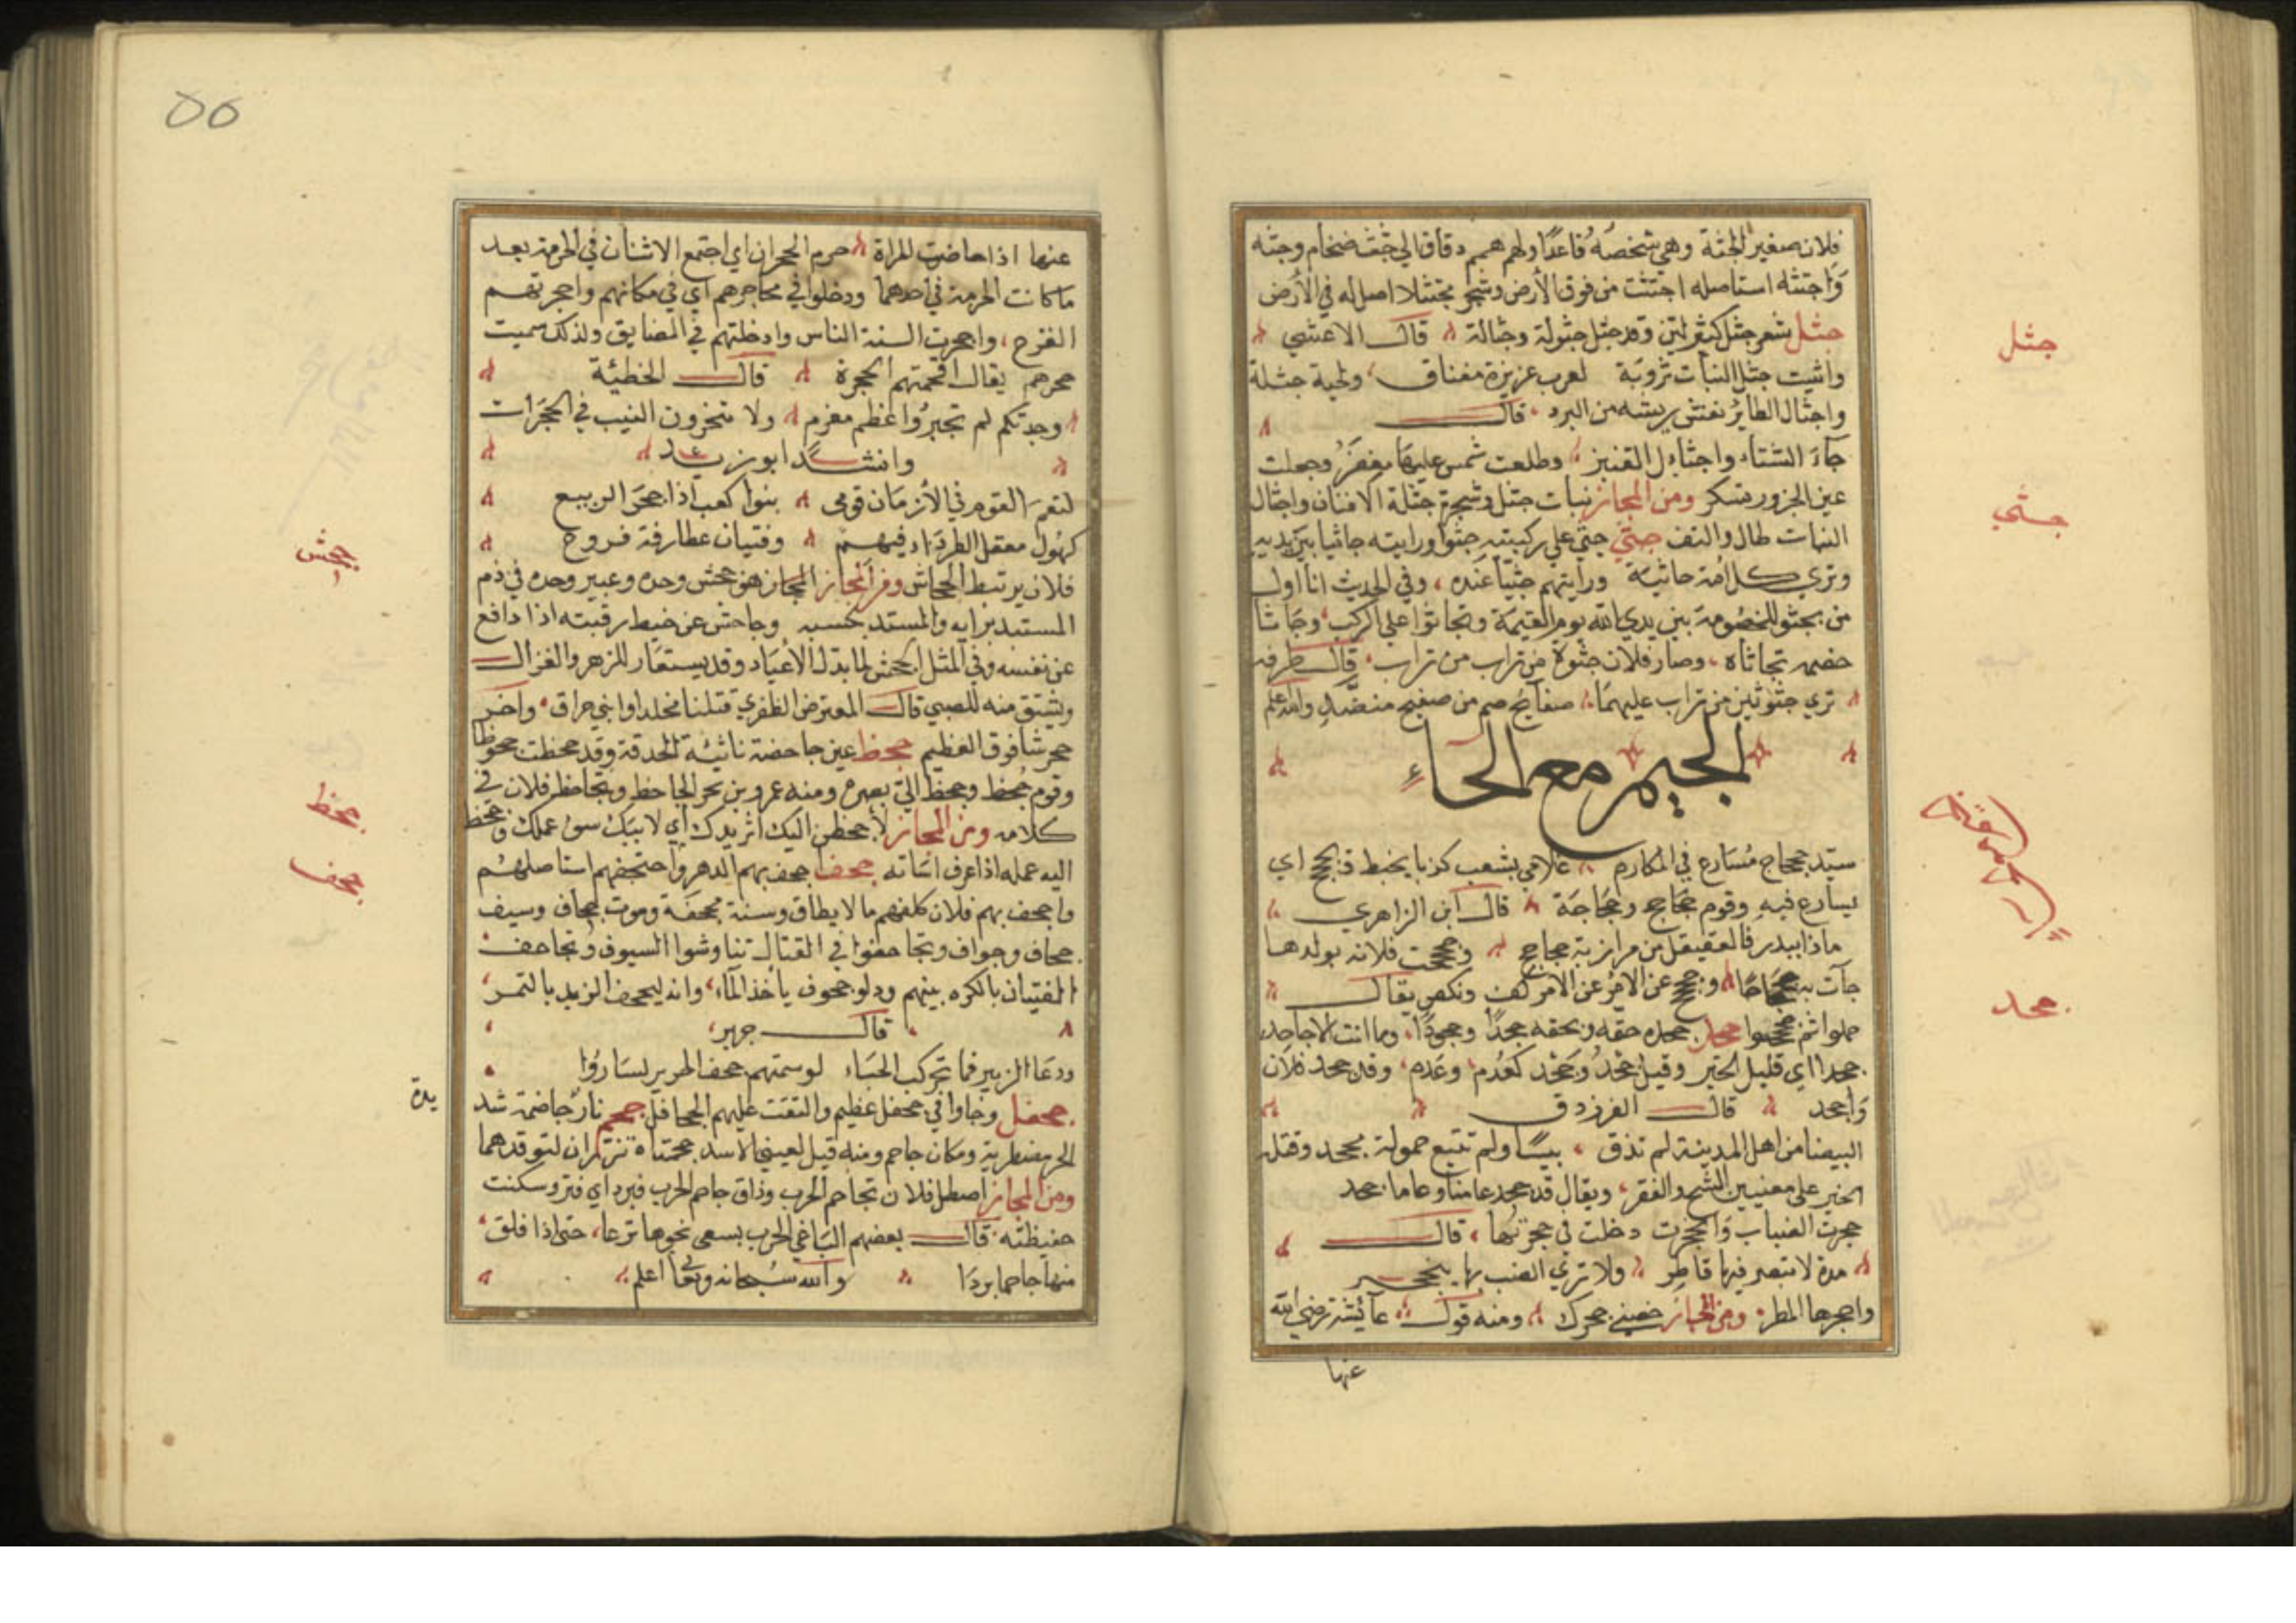 فلان صغير الجثة وهي شخصه قاعدا ولهم همم دقاق الي جثث ضخام وجثه
واجتثه استاصله اجتثت من فوق الأرض وشجر مجتث لا اصل له في الأرض
جثل شعر جثل كثير لين وقد جثل جثولة وجثالة قال الاعشي
واثيت جثل النبات تروبة لعرب عزيزة مفناق ولحية جثلة
واجثال الطائر نفش ريشه من البرد قال
جآء الشتاء واجثال القنبر وطلعت شمس عليها مغفر وجعلت
عين الحزور تسكر ومن المجاز نبات جثل وشجرة جثلة الافنان واجثال
النبات طال والتف جثي جثي علي ركبتيه جثوا ورايته جاثيا بين يديه
وتري كل أمة جاثية ورأيتهم جثيا عنده وفي الحديث انا اول
من يجثو للخصومة بين يدي الله يوم القيمة وتجاثوا علي الركب وجاثا
خصمه تجاثاه وصار فلان جثوة من تراب من تراب قال طرفه
تري جثوتين من تراب عليهما صفايح صم من صفيح منضد والله اعلم
الجيم مع الحاء
سيد جحجاح مسارع في المكارم
يسارع فيه وقوم جحاجح وجحاجحة قال ابن الزاهري
ماذا ببدر فالعقيقل من مرازبة جحاجح وجحجحت فلانه بولدها
جآت به جحجاحا وجحجح عن الامر عن الامر كف ونكص يقال
حملوا ثم جحجحوا جحد جحده حقه وبحقه جحدا وجحودا وما انت الا جاحد
جحد اي قليل الخير وقيل جحد وجحد كعدم وعدم وقد جحد فلان
واجحد قال الفرزدق
لبيضا من اهل المدينة لم تذق بيسا ولم تتبع حمولة مجحد وقتله
الخير علي معنيين الشح والفقر ويقال قد جحد عامنا وعاما جحد
جحرت الضباب وانجحرت دخلت في جحرتها قال
مدة لا تبصر فيها قاطر ولا تري الضب بها ينجحر
واجحرها المطر ومن المجاز حصني جحرك ومنه قول عآئشة رضي الله
عنها
جثل
جثي
جحد
عنها اذا حاضت المراة حرم الجحران اي اجتمع الاثنان في الحرمة بعد
ما كانت الحرمة في احدهما ودخلوا في محاجرهم اي في مكانهم واجحرتهم
الفزع واجحرت السنة الناس وادخلتهم في المضايق ولذلك سميت
جحرهم يقال اقحمتهم الجحرة قال الحطيئة
وجدتكم لم تجبروا عظم مغرم ولا تنحرون النيب في الجحرات
وانشد ابو زيد
لنعم القوم في الأزمان قومي بنوا كعب اذا جحر الربيع
كهول معقل الطرداء فيهم وفتيان غطارفة فروع
فلان يرتبط الجحاش ومن المجاز المجاز هو جحش وحده وعيير وحده في ذم
المستبد برايه والمستبد بكسبه وجاحش عن خيط رقبته اذا دافع
عن نفسه وفي المثل الجحش لما بذك الأعياد وقد يستعار للمهر والغزال
ويشتق منه للصبي قال المعترض الظفري قتلنا مخلدا وابني حراق واخر
جحوشا فوق الفطيم جحظ عين جاحضة ناتئة الحدقة وقد جحظت جحوظا
وقوم جحظ وجحظ الي بصره ومنه عمرو بن بحر الجاحظ وتجاحظ فلان في
كلامه ومن المجاز لأجحظن اليك اثر يدك اي لأبينك سوء عملك وجحظ
اليه عمله اذا عرف اساته جحف جحف بهم الدهر واجتحفهم استاصلهم
واجحف بهم فلان كلفهم ما لا يطاق وسنة مجحفة وموت جحاف وسيف
جحاف وجواف وتجاحفوا في القتال تناوشوا السيوف وتجاحف
الفتيان بالكره بينهم ودلو جحوف ياخذ المآء وانه ليجحف الزبد بالتمر
قال جرير
ودعا الزبير فما تحركت الحباء لو سمتهم جحف الخزير لساروا
جحفل وجاوا في جحفل عظيم والتقت عليهم الجحافل جحم نار جاحمة شديدة
الحر مضطربة ومكان جاحم ومنه قيل لعيني الاسد جحمتاه تزهران لتوقدهما
ومن المجاز اصطلي فلان تجاحم الحرب وذاق جاحم الحرب فبرد اي فتر وسكنت
حفيظته قال بعضهم الباغي الحرب يسعي نحوها ترعا حتي اذا فلق
منها جاحما بردا والله سبحانه وتعالي اعلم
جحش
جحظ
جحف